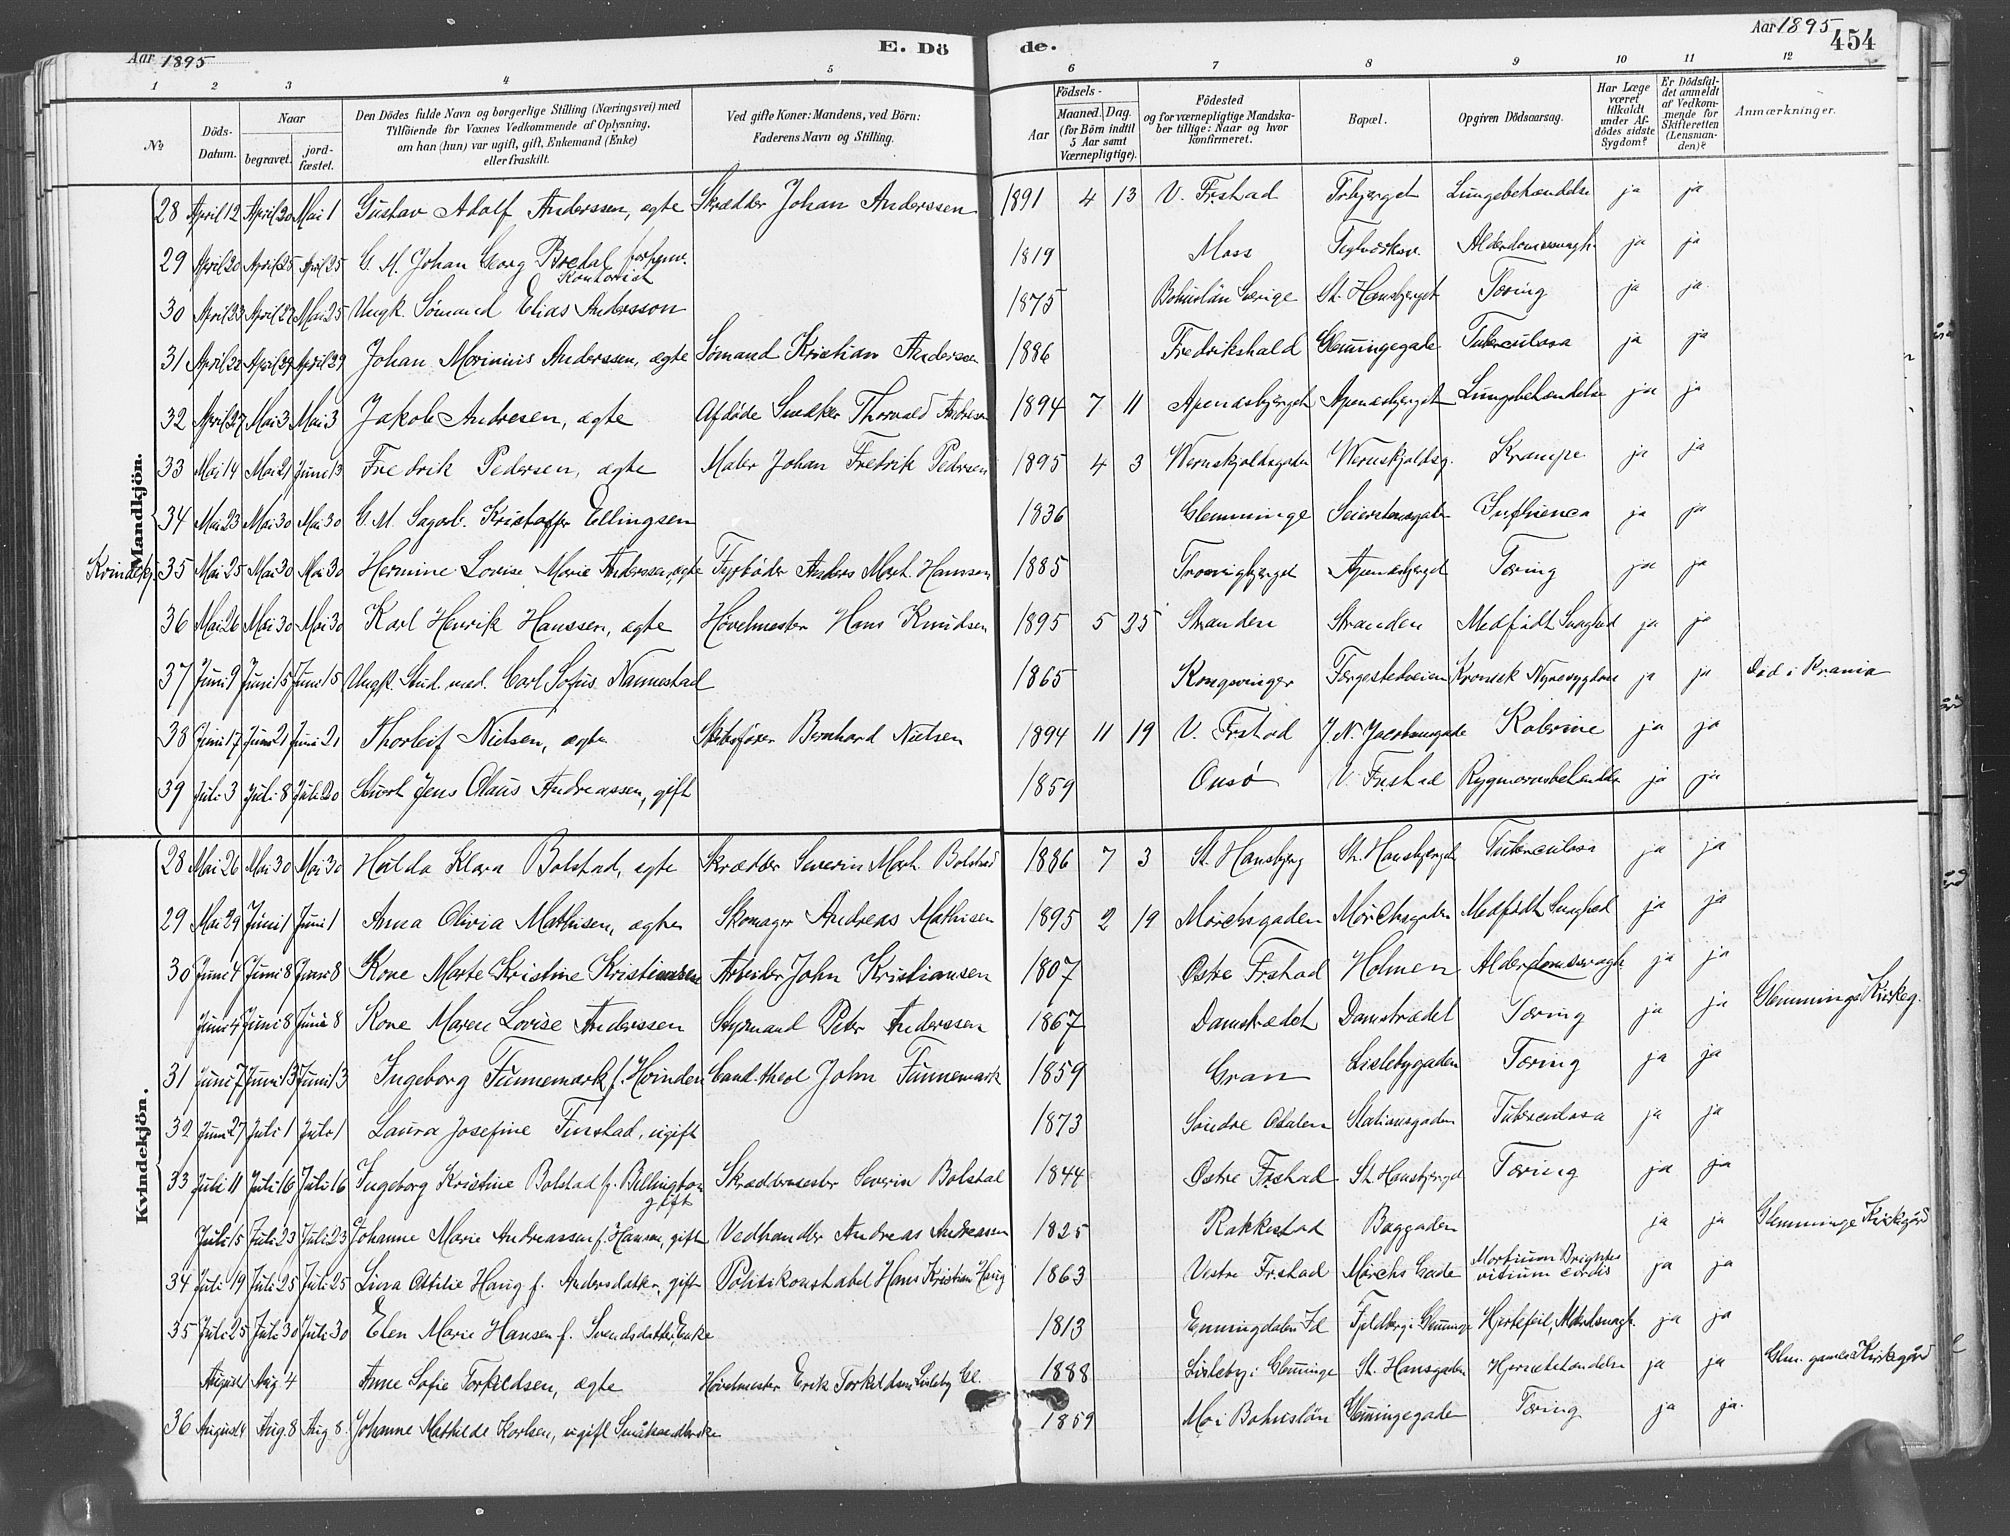 Aar 1895 E. Dö de. Aar 1895 454
1 2 3 4 5 6 7 8 9 10 11 12
No Döds-Datum. Naar begravet. jord-fæstet. Den Dödes fulde Navn og borgerlige Stilling (Næringsvei) med Tilföiende for Voxnes Vedkommende af Oplysning, om han (hun) var ugift, gift, Enkemand (Enke) eller fraskilt. Ved gifte Koner: Mandens, ved Börn: Faderens Navn og Stilling. Aar Födsels- Maaned. Dag. (for Börn indtil 5 Aar samt Værnepligtige). Födested og for værnepligtige Mandskaber tillige: Naar og hvor konfirmeret. Bopæl. Opgiven Dödsaarsag. Har Læge været tilkaldt under Afdödes sidste Sygdom? Er Dödsfaldet anmeldt af Vedkommende for Skifteretten (Lensmanden)? Anmærkninger.
Mandkjön.
28 April 12 April 20 Mai 1 Gustav Adolf Anderssen, ægte Skrædder Johan Anderssen 1891 4 13 V. Frstad Trbjerget Lungebetændelse ja ja
29 April 20 April 25 April 25 G. M. Johan Georg Bredal forhenv. Kontorist 1819 Moss Teglverksv. Alderdomssvagh. ja ja
30 April 23 April 27 Mai 25 Ungk. Sömand Elias Andersson 1875 Bohuslän Sverige St. Hansbjerget Tæring ja ja
31 April 22 April 29 April 29 Johan Marinius Anderssen, ægte Sömand Kristian Anderssen 1886 Fredrikshald Glemmingegade Tuberculosa ja ja
32 April 27 Mai 3 Mai 3 Jakob Andresen, ægte Afdöde Snekker Thorvald Andresen 1894 7 11 Apenæsbjerget Apenæsbjerget Lungebetændelse ja ja
33 Mai 14 Mai 21 Juni 13 Fredrik Pedersen, ægte Maler Johan Fredrik Pedersen 1895 4 3 Wernskjoldsgaden Wernskjoldsg. Krampe ja ja
34 Mai 23 Mai 30 Mai 30 G. M. Sagarb. Kristoffer Ellingsen 1836 Glemminge Seierstensgaden Influenca ja ja
Kvindekj. 35 Mai 25 Mai 30 Mai 30 Hermine Lovise Marie Anderssen, ægte Fyrböder Anders Mart. Hanssen 1885 Trosvigbjerget Apenæsbjerget Tæring ja ja
36 Mai 26 Mai 30 Mai 30 Karl Henrik Hanssen, ægte Hövelmester Hans Knudsen 1895 5 25 Stranden Stranden Medfödt Svaghed ja ja
37 Juni 9 Juni 15 Juni 15 Ungk. Stud. med. Carl Sofus Nannestad 1865 Kongsvinger Færgestedveien Kronisk Nyresygdom ja ja Död i Krania
38 Juni 17 Juni 21 Juni 21 Thorleif Nielsen, ægte Skibsförer Bernhard Nielsen 1894 11 19 V. Frstad J. N. Jacobsensgade Kolerine ja ja
39 Juli 3 Juli 8 Juli 20 Jens Olaus Andreassen, gift 1859 Onsö V. Frstad ja ja
Kvindekjön.
28 Mai 26 Mai 30 Mai 30 Hulda Klara Bolstad, ægte Skrædder Severin Mart. Bolstad 1886 7 3 St. Hansbjerg St. Hansbjerget Tuberculosa ja ja
29 Mai 29 Juni 1 Juni 1 Anna Olivia Mathisen, ægte Skomager Andreas Mathisen 1895 2 19 Mörchsgaden Mörchsgaden Medfödt Svaghed ja ja
30 Juni 4 Juni 8 Juni 8 Kone Marte Kristine Kristiansen Arbeider John Kristiansen 1807 Østre Frstad Holmen Alderdomssvagh. ja ja
Juni 4 Juni 8 Juni 8 Kone Maren Lovise Anderssen Styrmand Peter Anderssen 1867 Damstrædet Damstrædet Tæring ja ja Glemminge Kirkeg.
31 Juni 7 Juni 13 Juni 13 Ingeborg Funnemark f. Hvinden Cand. theol John Funnemark 1859 Gran Lislebygaden Tæring ja ja
32 Juni 27 Juli 1 Juli 1 Laura Josefine Finstad, ugift 1873 Söndre Odalen Stationsgaden Tuberculosa ja ja
33 Juli 11 Juli 16 Juli 16 Ingeborg Kristine Bolstad f. Bellington gift Skræddermester Severin Bolstad 1844 Østre Frstad St. Hansbjerget Tæring ja ja
Juli 15 Juli 23 Juli 23 Johanne Marie Andreassen f. Hansen, gift Vedhandler Andreas Andreassen 1825 Rakkestad Baggaden ja ja Glemminge Kirkegård
34 Juli 19 Juli 25 Juli 25 Lina Ottilie Haug f. Andersdatter, gift Politikonstabel Hans Kristian Haug 1863 Vestre Frstad Mörchs Gade Morbium Brightii vitium cordis ja ja
35 Juli 25 Juli 30 Juli 30 Elen Marie Hansen f. Svendsdatter, Enke 1813 Enningdalen Id Fjeldberg i Glemminge Hjertefeil, ja ja
August 1 Aug 4 Anne Sofie Torkildsen, ægte Hövelmester Erik Torkildsen Lisleby Gl. 1888 Lisleby i Glemminge St. Hansgaden Hjernebetændelse ja ja Glm. gamle Kirkegård
36 August 4 Aug. 8 Aug 8. Johanne Mathilde Karlsen, ugift Småhandlerske 1859 Mo i Bohuslän Glemmingegaden Tæring ja ja.